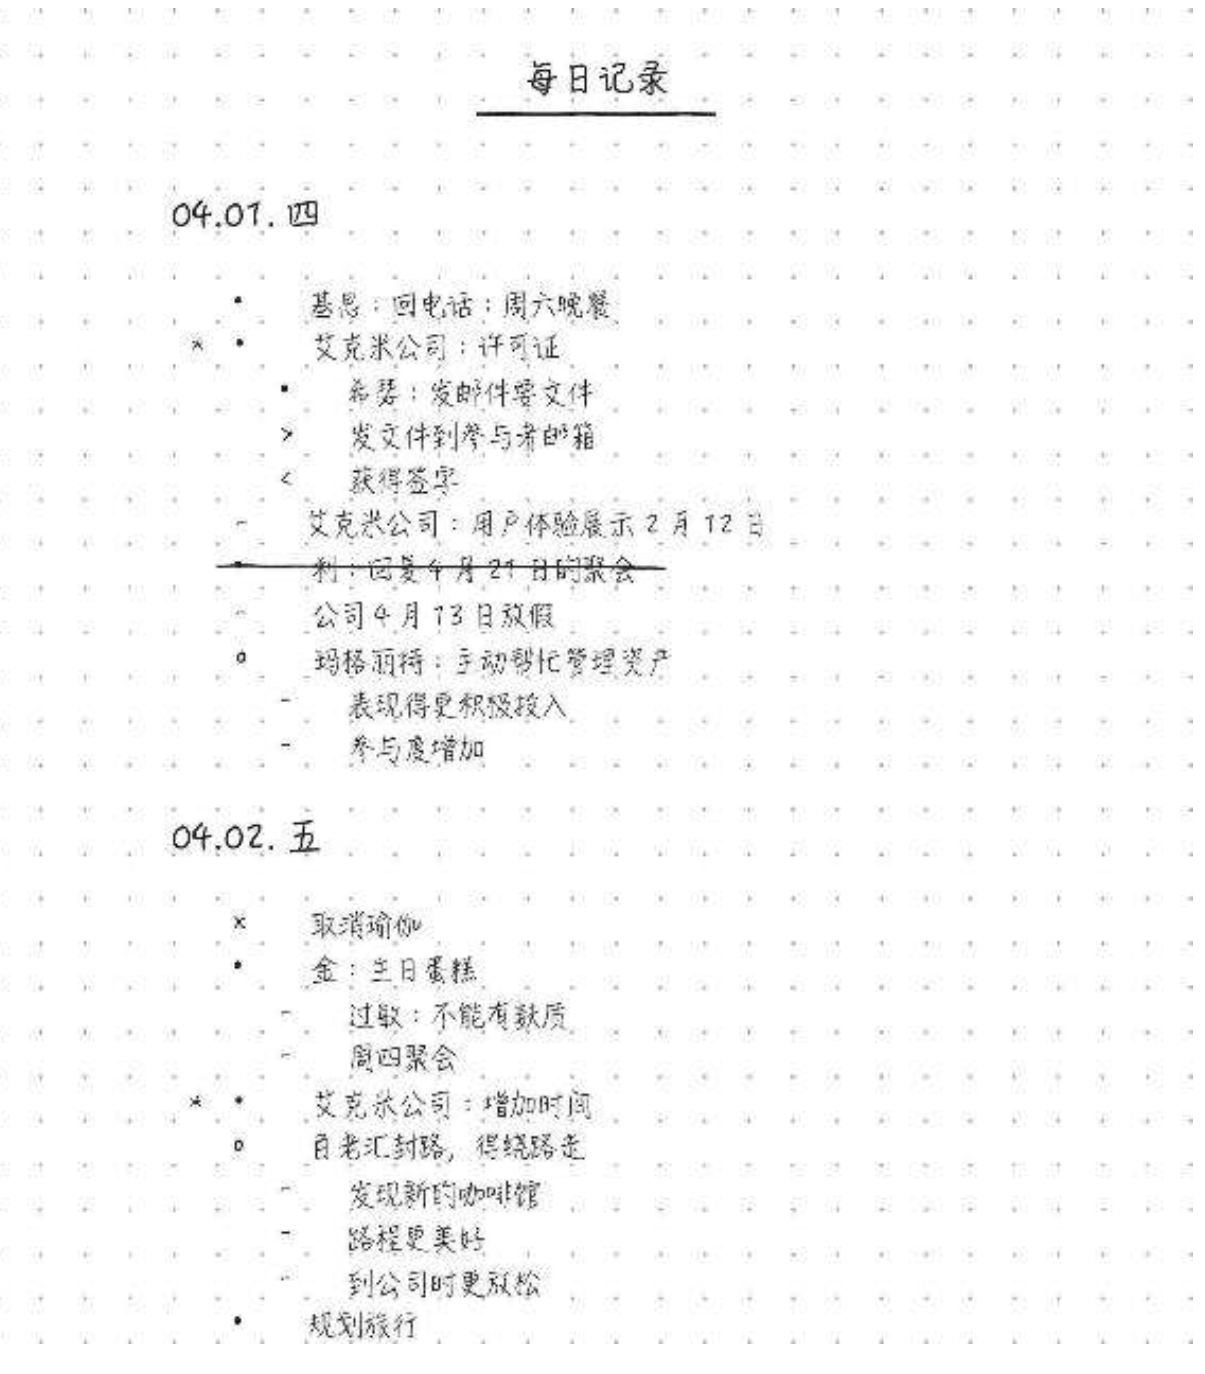 每日记录
04.01. 四
• 基恩：回电话：周六晚餐
* • 艾克米公司：许可证
• 希瑟：发邮件要文件
> 发文件到参与者邮箱
< 获得签字
– 艾克米公司：用户体验展示2月12日
• 利：回复4月21日的聚会
– 公司4月13日放假
o 玛格丽特：主动帮忙管理资产
– 表现得更积极投入
– 参与度增加
04.02. 五
× 取消瑜伽
• 金：生日蛋糕
– 过敏：不能有麸质
– 周四聚会
* • 艾克米公司：增加时间
o 百老汇封路，得绕路走
– 发现新的咖啡馆
– 路程更美好
– 到公司时更放松
• 规划旅行